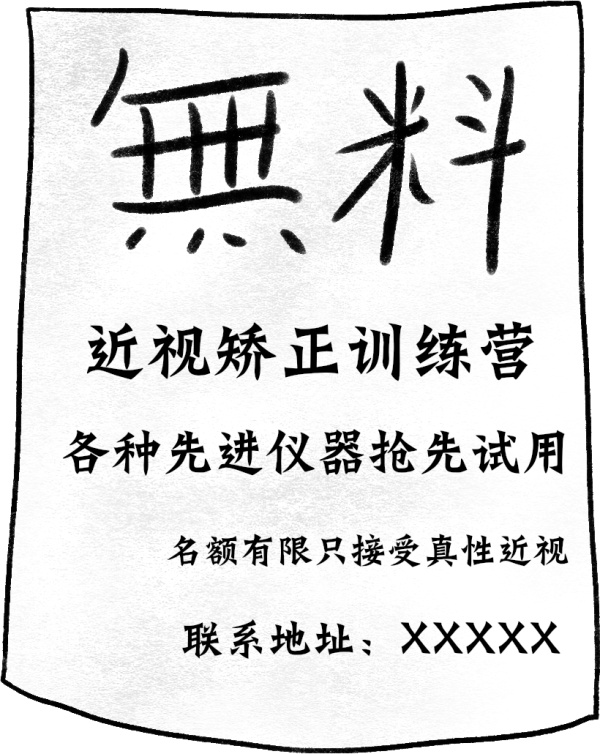 無料
近视矫正训练营
各种先进仪器抢先试用
名额有限只接受真性近视
联系地址：XXXXX